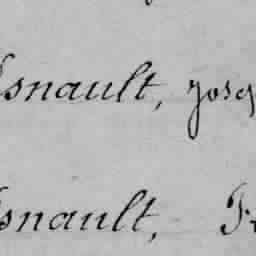 Esnault, Josep
Esnault, Fr